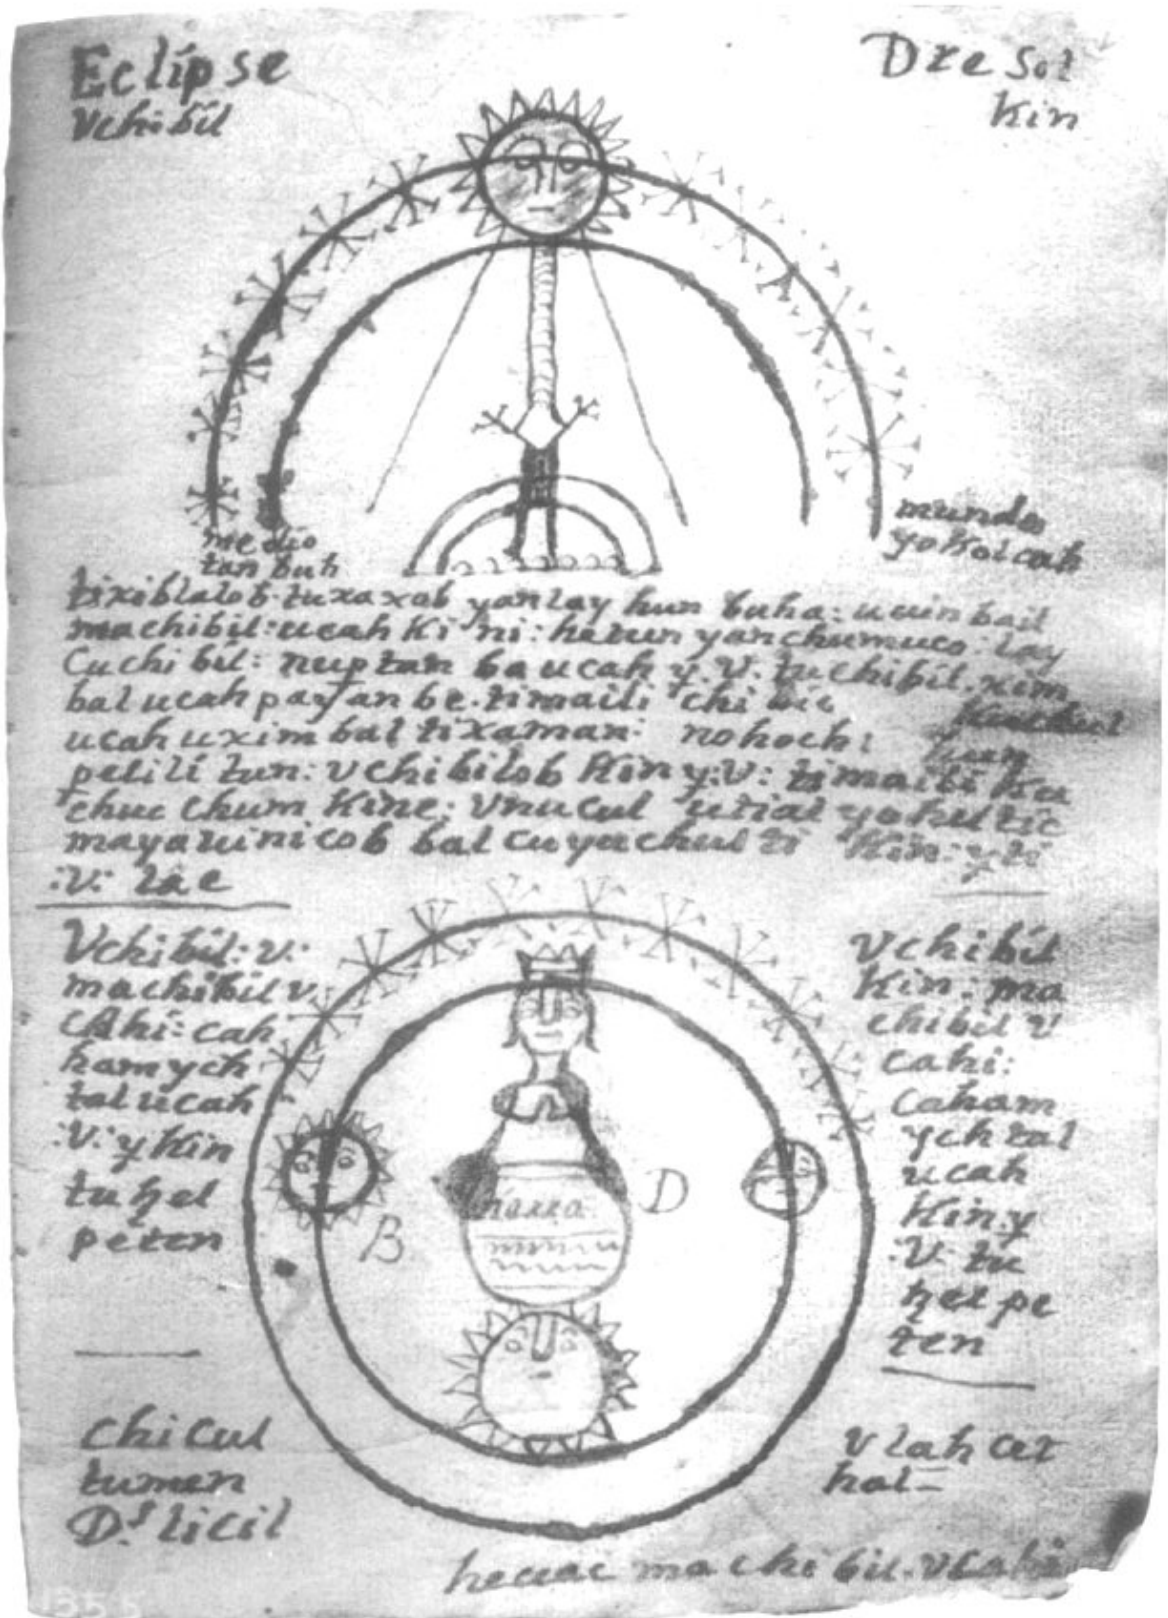 Eclipse
Vchibil
Dre Sol
Kin
medio
tan buh
mundo
yokolcab
tixiblalob tuxaxob yanlay hun buha: u uinbail
machibil: ucah Ki ni: hetun yanchumuco: lay
Cuchibil: nuptanba ucah y. V. tuchibil. xim
bal ucah payanbe. timaili chibic
ucah uximbal tixaman: nohoch:
petili tun: Vchibilob Kin y: V: timaili Ku
chuc chum Kine: Vnucul utial yoheltic
mayauinicob bal cuyuchul ti Kin: y ti
:V: lae
Vchibil: v:
machibil v
cahi: cah
hamych
tal ucah
:V: y Kin
tu hel
peten
B
D
Vchibil
Kin: ma
chibil V
cahi:
caham
ych tal
ucah
Kin y
:V: tu
hel pe
ten
chicul
tumen
Ds. licil
v lah cex
hal=
heuac machibil. Vcahi
1355